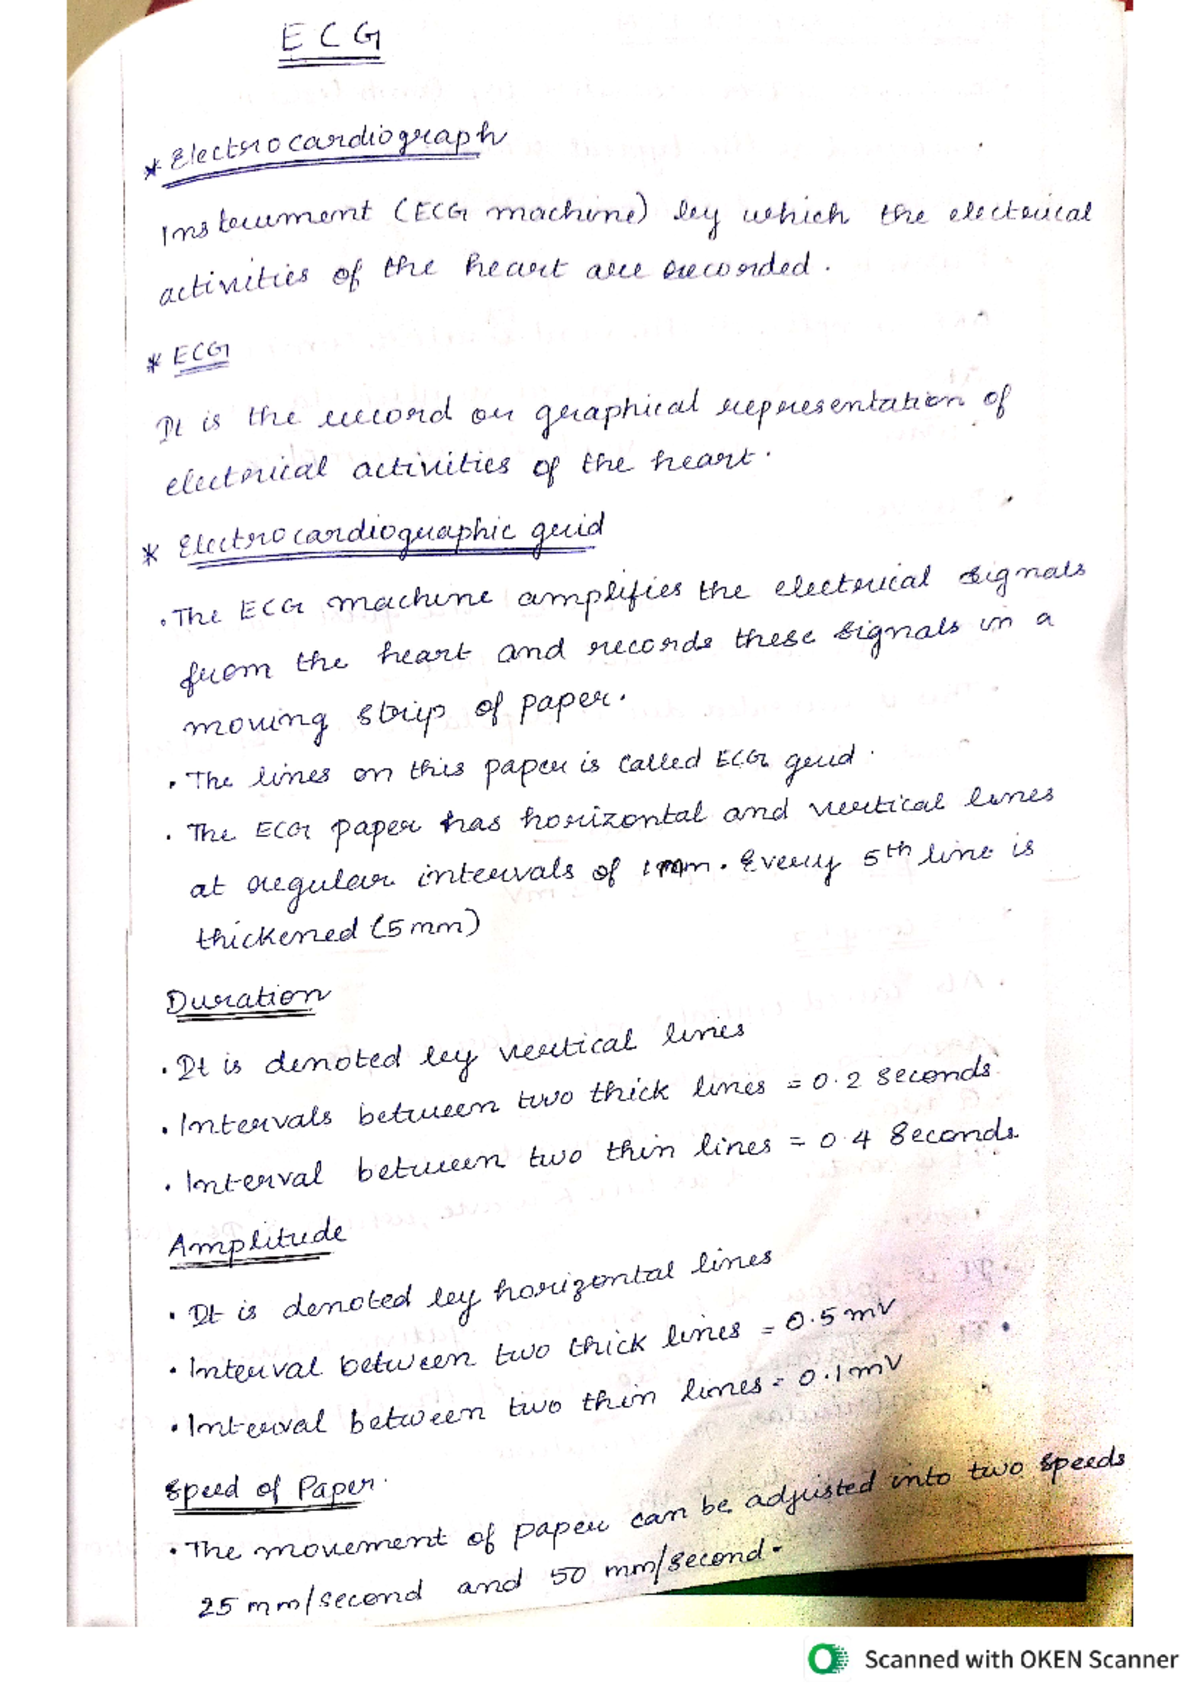 ECG
* Electrocardiograph
Instrument (ECG machine) by which the electrical
activities of the heart are recorded.
* ECG
It is the record or graphical representation of
electrical activities of the heart.
* Electrocardiographic grid
• The ECG machine amplifies the electrical signals
from the heart and records these signals in a
moving strip of paper.
• The lines on this paper is called ECG grid.
• The ECG paper has horizontal and vertical lines
at regular intervals of 1mm. Every 5th line is
thickened (5mm)
Duration
• It is denoted by vertical lines
• Intervals between two thick lines = 0.2 seconds
• Interval between two thin lines = 0.4 seconds.
Amplitude
• It is denoted by horizontal lines
• Interval between two thick lines = 0.5mV
• Interval between two thin lines = 0.1mV
Speed of Paper.
• The movement of paper can be adjusted into two speeds
25 mm/second and 50 mm/second.
Scanned with OKEN Scanner